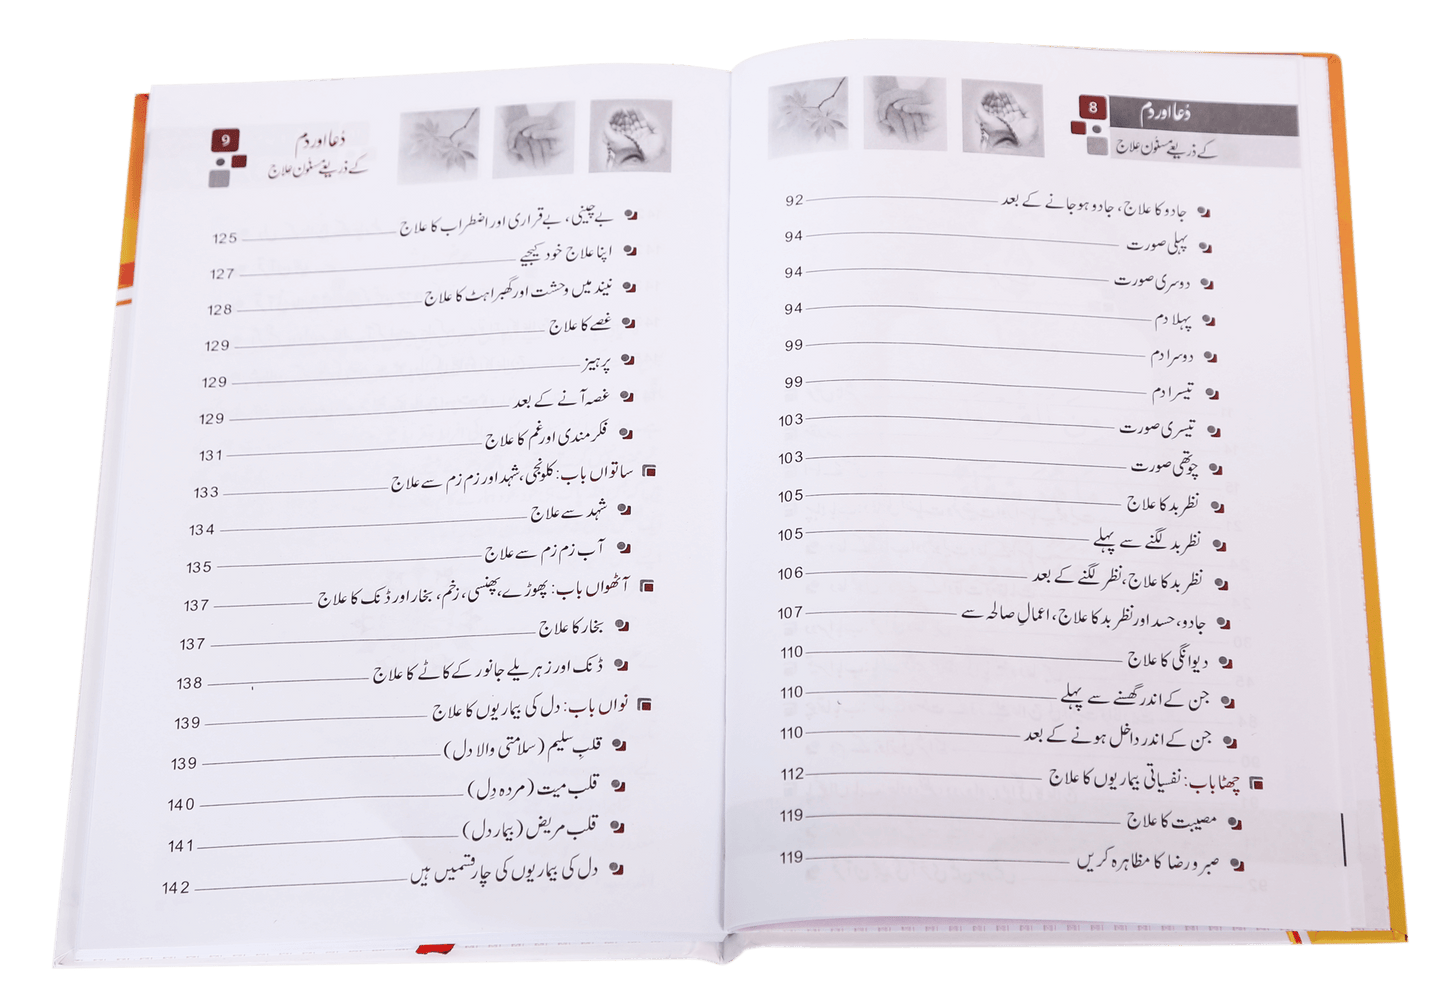 8
دُعا اور دم
کے ذریعے مسنون علاج
جادو کا علاج، جادو ہو جانے کے بعد 92
پہلی صورت 94
دوسری صورت 94
پہلا دم 94
دوسرا دم 99
تیسرا دم 99
تیسری صورت 103
چوتھی صورت 103
نظر بد کا علاج 105
نظر بد لگنے سے پہلے 105
نظر بد کا علاج، نظر لگنے کے بعد 106
جادو، حسد اور نظر بد کا علاج، اعمالِ صالحہ سے 107
دیوانگی کا علاج 110
جن کے اندر گھسنے سے پہلے 110
جن کے اندر داخل ہونے کے بعد 110
چھٹا باب: نفسیاتی بیماریوں کا علاج 112
مصیبت کا علاج 119
صبر و رضا کا مظاہرہ کریں 119
9
دُعا اور دم
کے ذریعے مسنون علاج
بے چینی، بے قراری اور اضطراب کا علاج 125
اپنا علاج خود کیجیے 127
نیند میں وحشت اور گھبراہٹ کا علاج 128
غصے کا علاج 129
پرہیز 129
غصہ آنے کے بعد 129
فکر مندی اور غم کا علاج 131
ساتواں باب: کلونجی، شہد اور زم زم سے علاج 133
شہد سے علاج 134
آب زم زم سے علاج 135
آٹھواں باب: پھوڑے، پھنسی، زخم، بخار اور ڈنک کا علاج 137
بخار کا علاج 137
ڈنک اور زہریلے جانور کے کاٹے کا علاج 138
نواں باب: دل کی بیماریوں کا علاج 139
قلبِ سلیم (سلامتی والا دل) 139
قلب میت (مردہ دِل) 140
قلب مریض (بیمار دل) 141
دل کی بیماریوں کی چار قسمیں ہیں 142